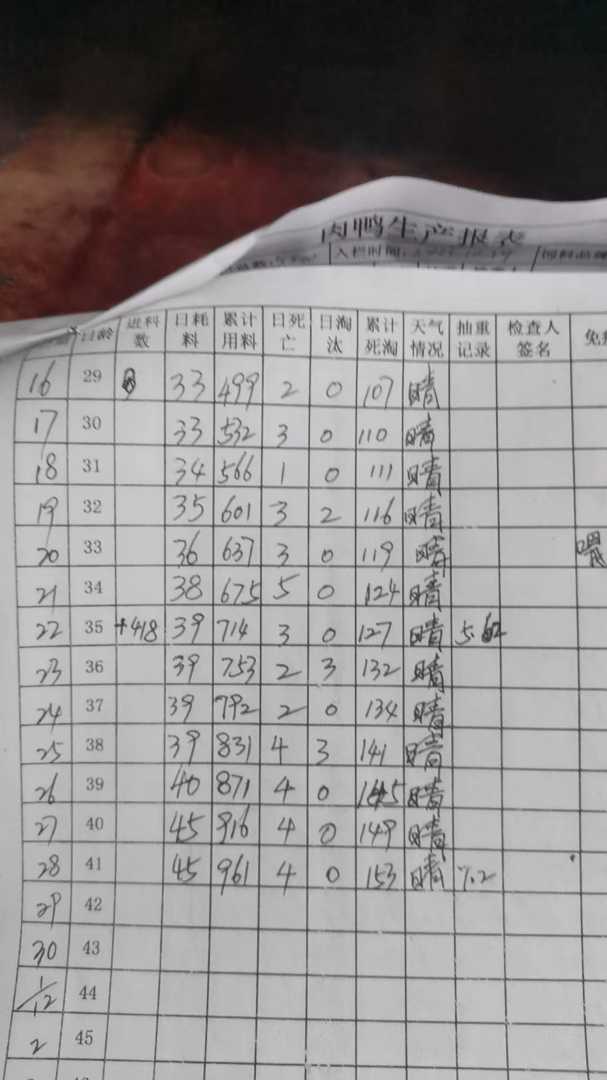 肉鸭生产报表
入栏时间:
日龄 进料数 日耗料 累计用料 日死亡 日淘汰 累计死淘 天气情况 抽重记录 检查人签名 免
16 29 33 499 2 0 107 晴
17 30 33 532 3 0 110 晴
18 31 34 566 1 0 111 晴
19 32 35 601 3 2 116 晴
20 33 36 637 3 0 119 晴
21 34 38 675 5 0 124 晴
22 35 +418 39 714 3 0 127 晴
23 36 39 753 2 3 132 晴
24 37 39 792 2 0 134 晴
25 38 39 831 4 3 141 晴
26 39 40 871 4 0 145 晴
27 40 45 916 4 0 149 晴
28 41 45 961 4 0 153 晴 7.2
29 42
30 43
1/12 44
2 45